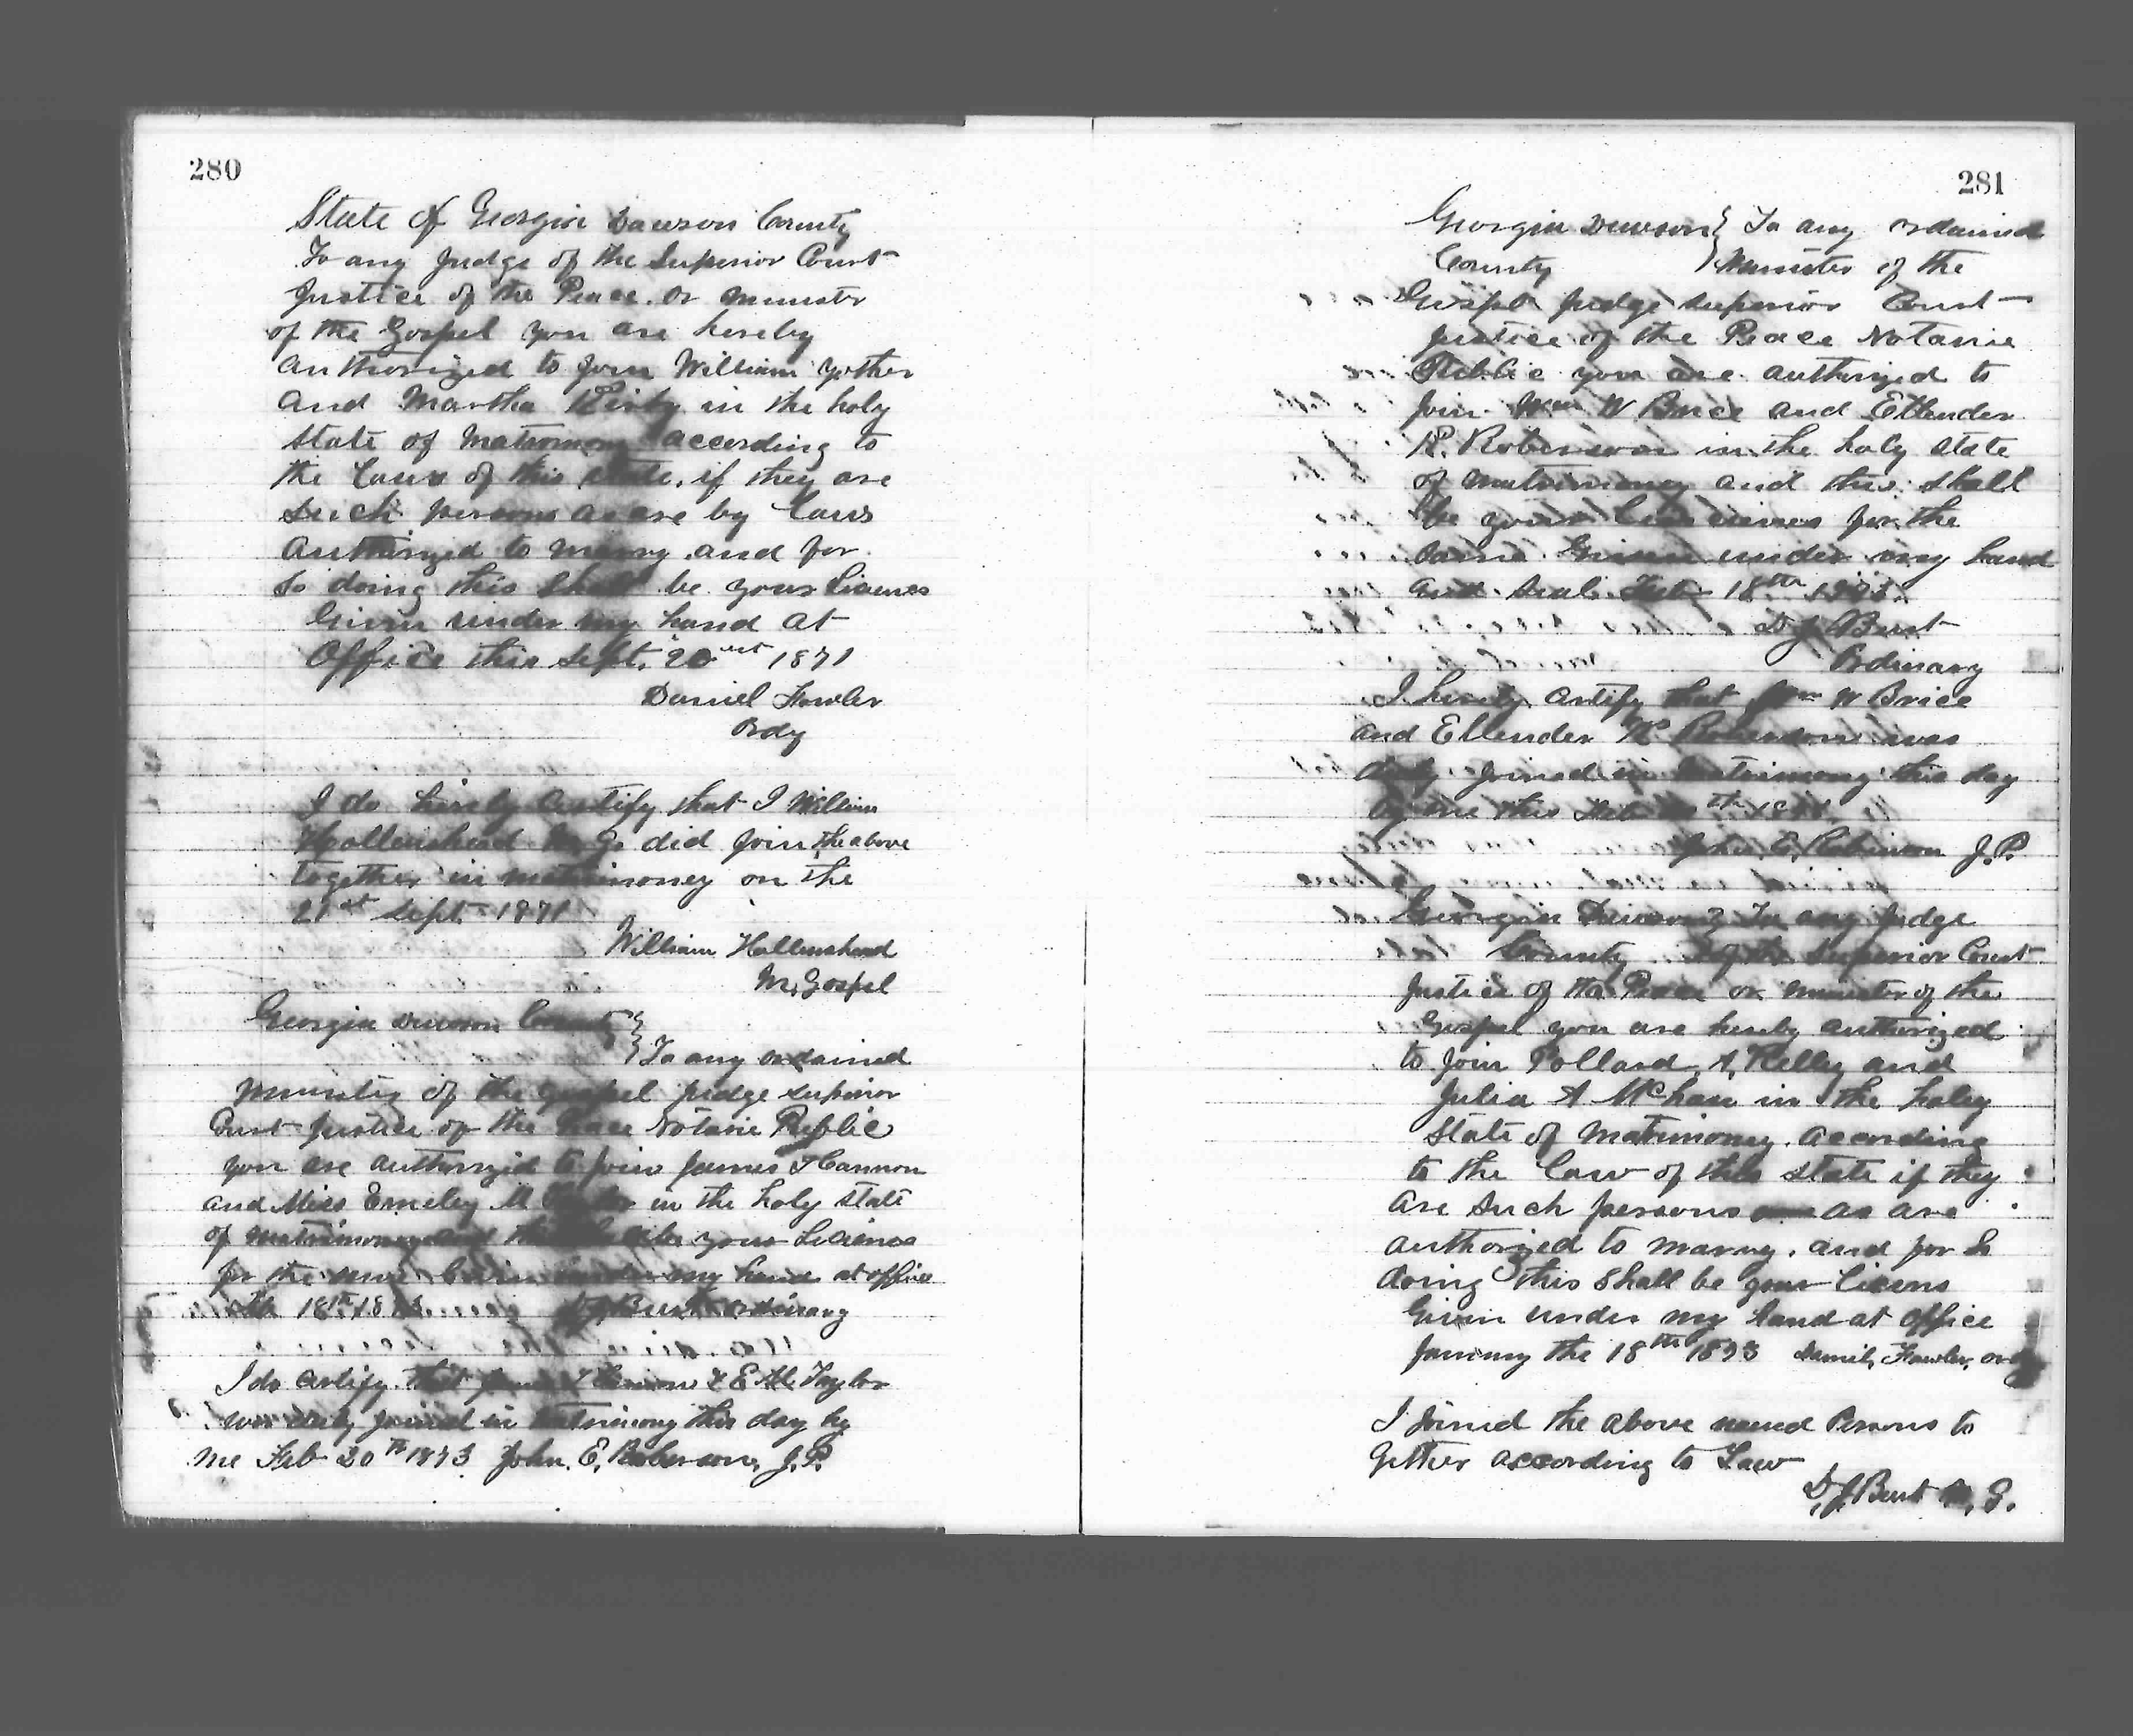 280
State of Georgia Dawson County
To any Judge of the Superior Court
Justice of the Peace. or minister
of the Gospel you are hereby
authorized to join William Yother
and Martha Kirby in the holy
state of Matrimony according to
the Laws of this state, if they are
such persons as are by Laws
authorized to marry and for
so doing this shall be your Licenes
Given under my hand at
Office this Sept. 20 1871
Daniel Fowler
Ordy
I do hereby certify that I William
Hollenshead M, G. did join the above
together in matrimoney on the
21st Sept. 1871
William Hollenshead
M, Gospel
Georgia Dawson County
To any ordained
minister of the gospel judge superior
Court Justice of the Peace Notarie Public
you are authorized to join James T Cannon
and Miss Emeley M in the holy state
of matrimoney and this shall be your Licience
for the same Given under my hand at office
Feb 18th 1873 D J Burt ordinary
I do certify that James T Cannon & E M Taylor
was duly joined in matrimony this day by
me Feb 20th 1873 John. E. Roberson, J.P.
281
Georgia Dawson To any ordained
County Minister of the
Gospel judge superior Court
Justice of the Peace Notarie
Public you are authorized to
join Wm W Brice and Ellender
R. Roberson in the holy state
of matrimoney and this shall
be your for the
same Given under my hand
and seal Feb 18th
D J Burt
Ordinary
I hereby certify that Wm W Brice
and Ellender R Roberson was
duly joined in matrimony this day
by me this Feb
Robinson J.P.
Georgia Dawson To any Judge
County of the Superior Court
Justice of the Peace or minister of the
Gospel you are hereby authorized
to join Pollard, A, Kelley and
Julia A McHan in the holey
State of Matrimony. according
to the Law of this state if they
are such persons as are
authorized to marry, and for so
doing this shall be your licens
Given under my hand at office
January the 18th 1873 Daniel, Fowler, ordy
I joined the above named Persons to
gether according to Law
D, J Burt M, G.